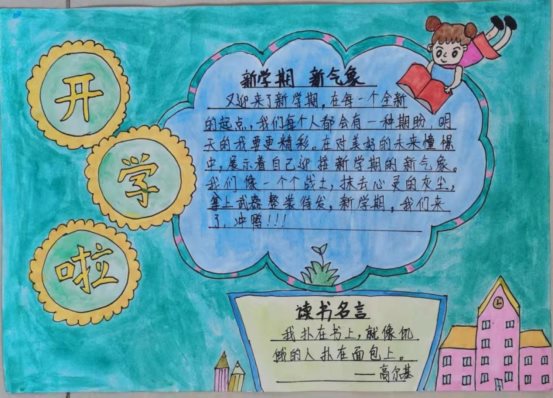 开
学
啦
新学期 新气象
又迎来了新学期,在每一个全新
的起点,我们每个人都会有一种期盼,明
天的我要更精彩。在对美好的未来憧憬
中,展示着自己迎接新学期的新气象。
我们像一个个战士,抹去心灵的灰尘,
拿上武器整装待发,新学期,我们来
了,冲啊!!!
读书名言
我扑在书上,就像饥
饿的人扑在面包上。
——高尔基